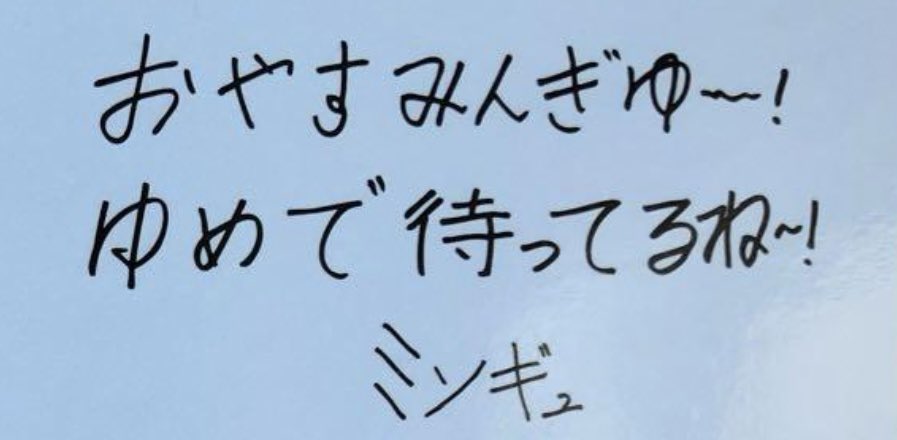 おやすみんぎゅ〜!
ゆめで待ってるね〜!
ミンギュ